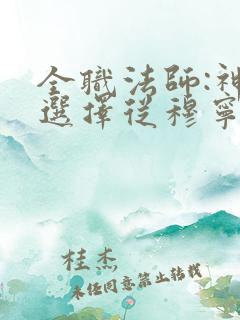 全職法師:神
選擇從穆寧
桂杰
未任同意禁止转载